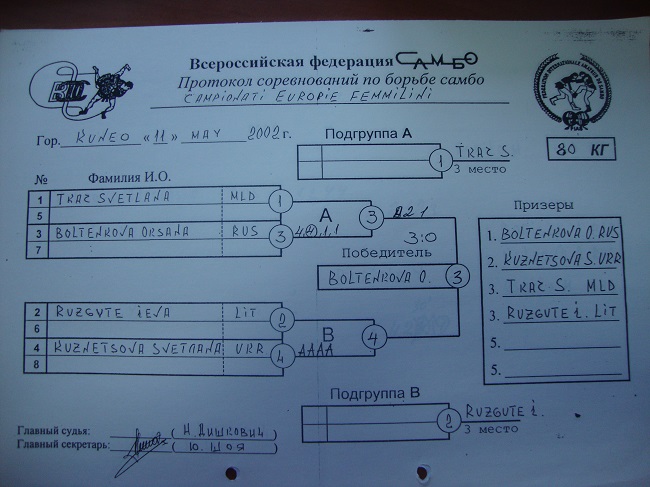 Всероссийская федерация САМБО
Протокол соревнований по борьбе самбо
CAMPIONATI EUROPIE FEMMILINI
Гор. KUNEO «11» MAY 2002 г.
Подгруппа А
1 TRAZ S.
3 место
80 КГ
№ Фамилия И.О.
1 TRAZ SVETLANA MLD 1
5
3 BOLTENKOVA ORSANA RUS 3
7
А 3
3:0
Победитель
BOLTENKOVA O. 3
2 RUZGUTE IEVA LIT 2
6
4 KUZNETSOVA SVETLANA URR 4
8
В AAAA 4
Призеры
1. BOLTENKOVA O. RUS
2. KUZNETSOVA S. URR
3. TRAZ S. MLD
3. RUZGUTE i. LIT
5.
5.
Подгруппа В
2 RUZGUTE i.
3 место
Главный судья: ( Н. Дишкович )
Главный секретарь: ( Ю. Шоя )